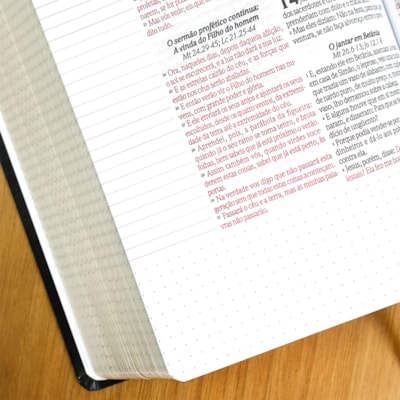 narem, se for po
²³ Mas vós vede; eis que
dito tudo.
O sermão profético continua:
A vinda do Filho do homem
Mt 24.29-45; Lc 21.25-44
²⁴ Ora, naqueles dias, depois daquela aflição,
o sol se escurecerá, e a lua não dará a sua luz.
²⁵ E as estrelas cairão do céu, e as forças que
estão nos céus serão abaladas.
²⁶ E então verão vir o Filho do homem nas nu-
vens, com grande poder e glória.
²⁷ E ele enviará os seus anjos e ajuntará os seus
escolhidos, desde os quatro ventos, da extremi-
dade da terra até a extremidade do céu.
²⁸ Aprendei, pois, a parábola da figueira:
quando já o seu ramo se torna tenro, e brota
folhas, bem sabeis que já está próximo o verão.
²⁹ Assim também vós, quando virdes suce-
derem estas coisas, sabei que já está perto, às
portas.
³⁰ Na verdade vos digo que não passará esta
geração sem que todas estas coisas aconteçam.
³¹ Passará o céu e a terra, mas as minhas pala-
vras não passarão.
14
dos sacerdotes e os
prenderiam com d
² Mas eles diziam: Não na festa, para que
ventura, se não faça alvoroço entre o
O jantar em Betânia
Mt 26.6-13; Jo 12.1
³ E, estando ele em Betânia, assentado
casa de Simão, o leproso, veio u
que trazia um vaso de alabastro,
to de nardo puro, de m
vaso, lho derramou sobre a cabeç
⁴ E alguns houve que em si m
naram, e disseram: Para que se
dício de unguento?
⁵ Porque podia vender-se po
dinheiros e dá-lo aos
contra ela.
⁶ Jesus, porém, disse:
lestais? Ela fez-me bo